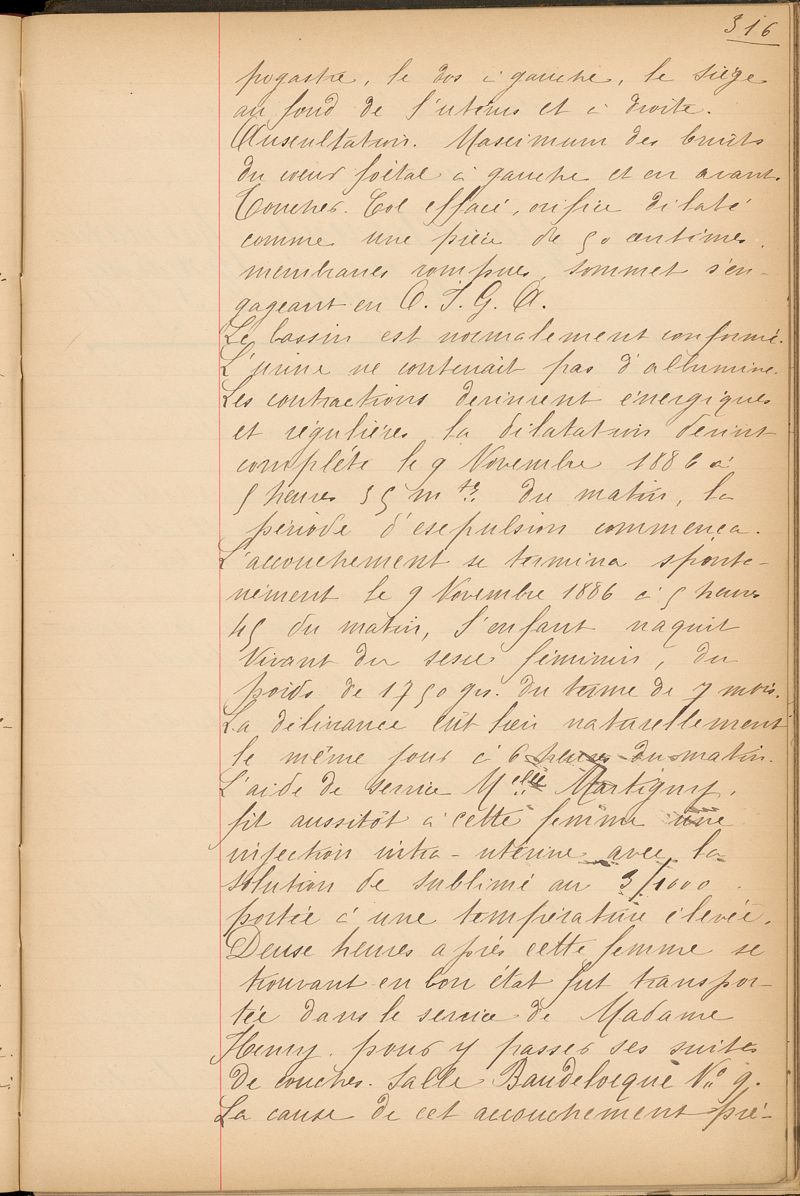 316
pogastre, le dos à gauche, le siège
au fond de l'utérus et à droite.
Auscultation. Maximum des bruits
du cœur fœtal à gauche et en avant.
Toucher. Col effacé, orifice dilaté
comme une pièce de 50 centimes.
membranes rompues, sommet s'en-
gageant en O. I. G. A.
Le bassin est normalement conformé.
L'urine ne contenait pas d'albumine.
Les contractions devinrent énergiques
et régulières la dilatation devint
complète le 9 Novembre 1886 à
5 heures 35 mtes du matin, la
période d'expulsion commença.
L'accouchement se termina sponta-
nément le 9 Novembre 1886 à 5 heures
45 du matin, l'enfant naquit
vivant du sexe féminin, du
poids de 1750 grs. du terme de 7 mois.
La délivrance eût lieu naturellement
le même jour à 6 heures du matin.
L'aide de service Melle Martigny,
fit aussitôt à cette femme une
injection intra-utérine avec la
solution de sublimé au 3/1000
portée à une température élevée.
Deux heures après cette femme se
trouvant en bon état fut transpor-
tée dans le service de Madame
Henry. pour y passer ses suites
de couches. Salle Baudelocque No 9.
La cause de cet accouchement pré-